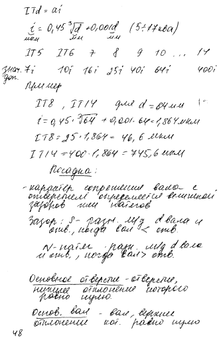 ITd = ai
i = 0,45 ∛d + 0,001d (5÷17 ква)
мкм мм мм
IT5 IT6 7 8 9 10 ... 17
знач. доп. 7i 10i 16i 25i 40i 64i 400i
Пример
IT8, IT14 для d = 64 мм
i = 0,45·∛64 + 0,001·64 = 1,864 мкм
IT8 = 25·1,864 = 46,6 мкм
IT14 = 400·1,864 = 745,6 мкм
Посадка:
- характер сопряжения вала с
отверстием определяется величиной
зазоров или натягов
Зазор: S - разн. м/д d вала и
отв., когда вал < отв.
N - натяг. разн. м/д d вала
и отв., когда вал > отв.
Основное отверстие - отверстие,
нижнее отклонение которого
равно нулю.
Основ. вал - вал, верхнее
отклонение кот. равно нулю
48